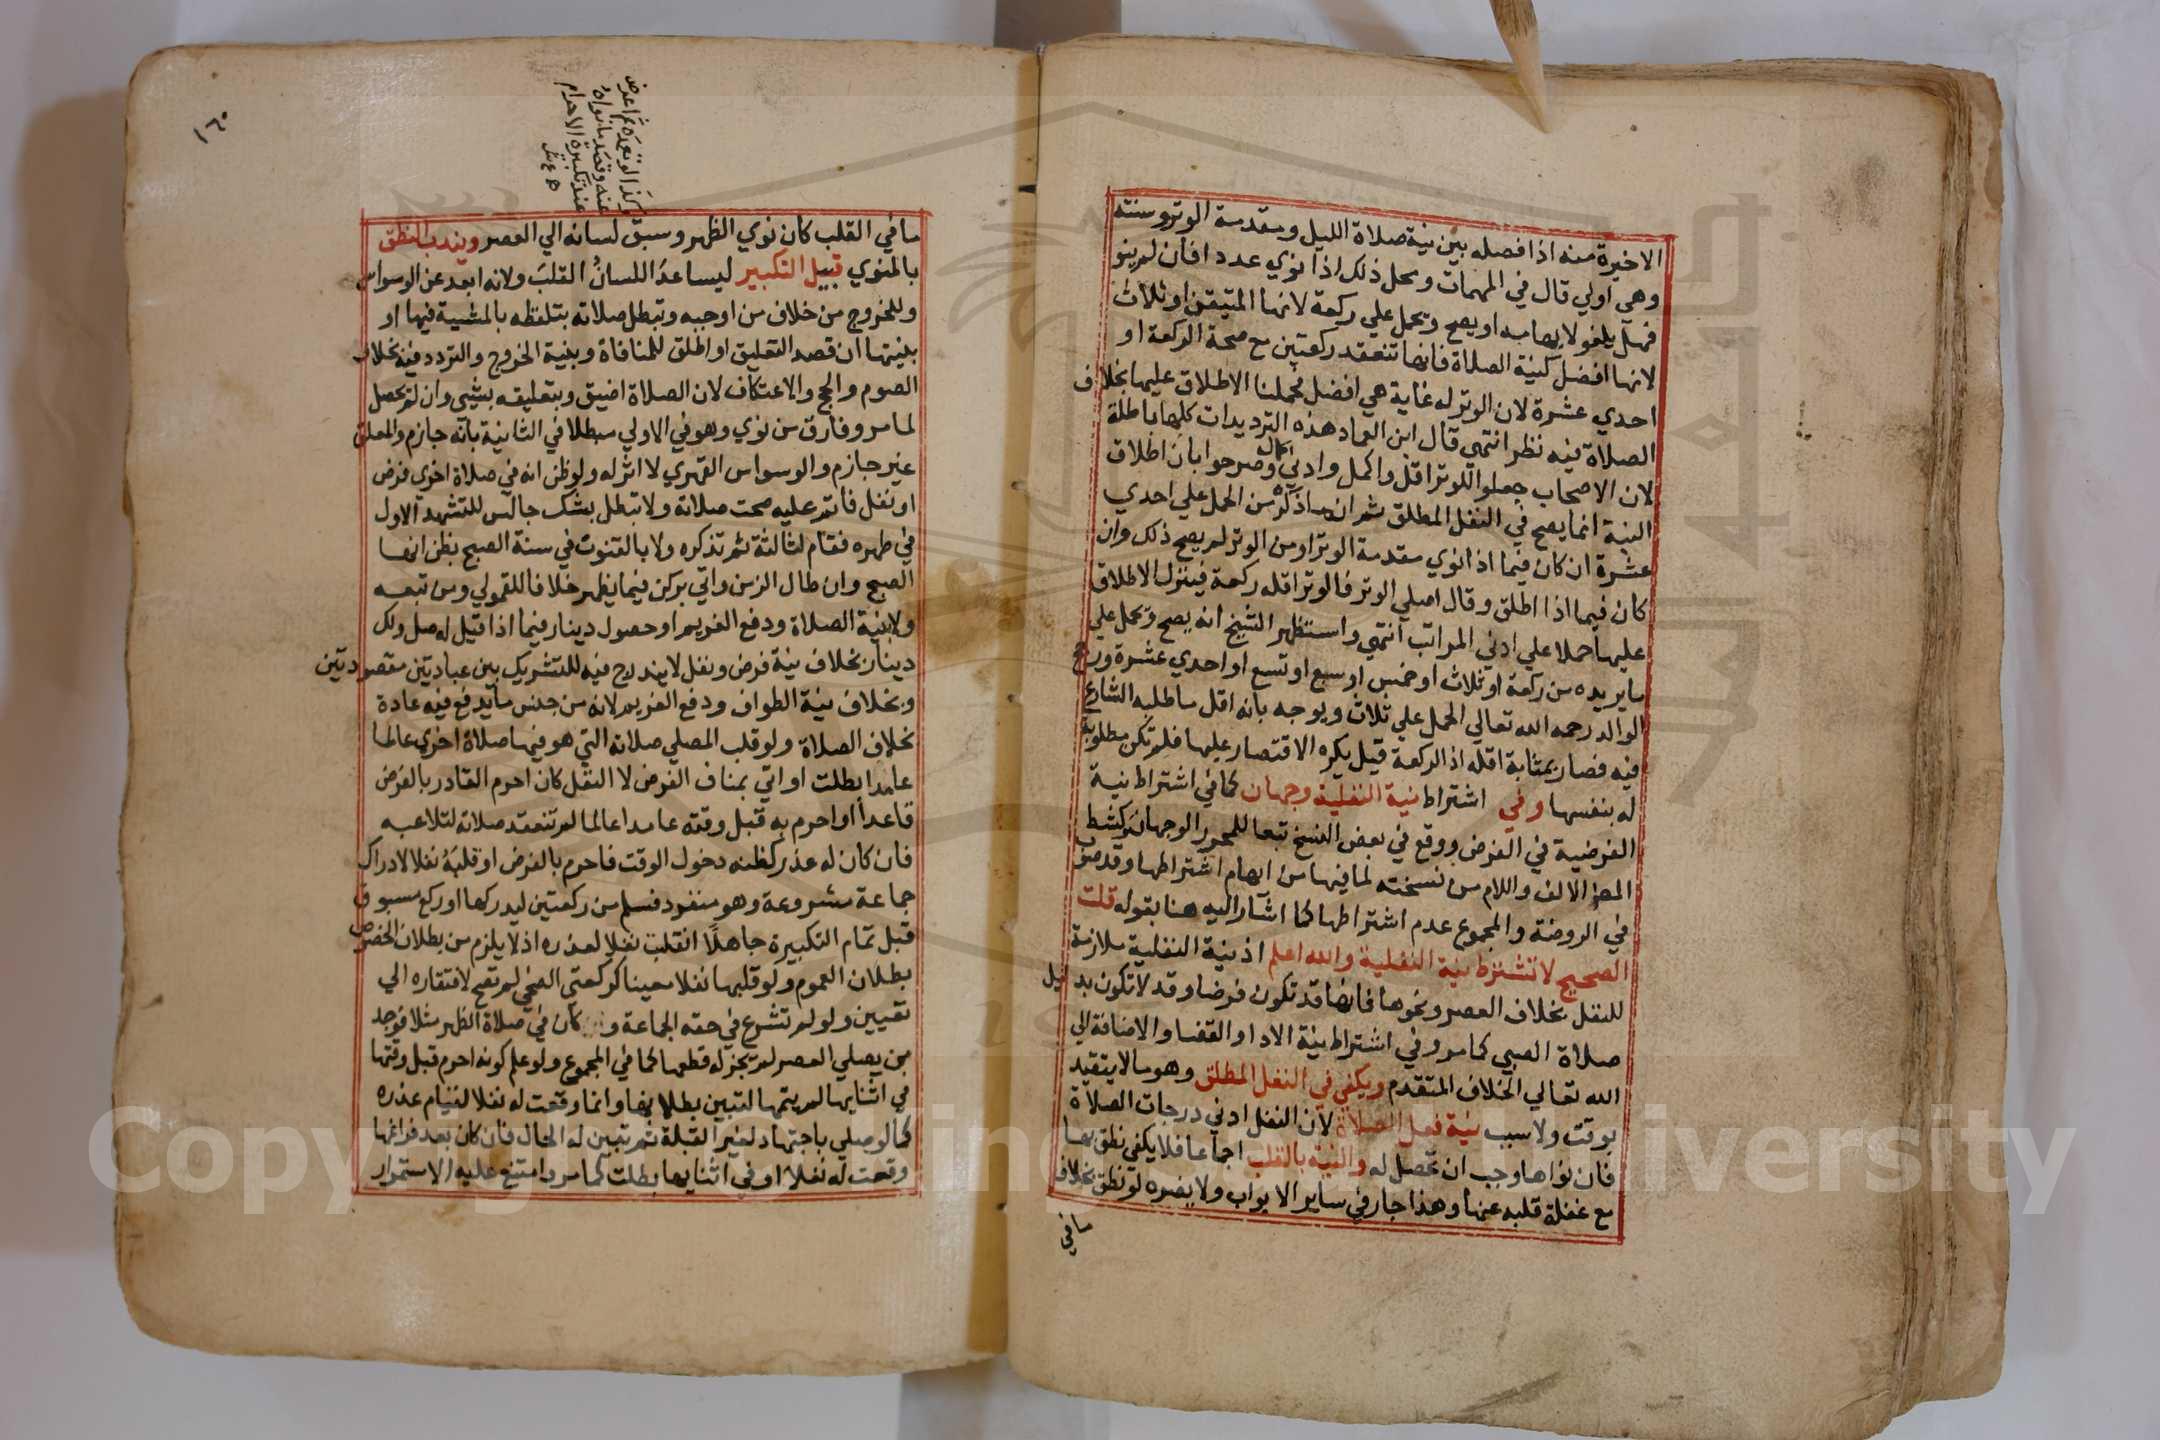 الاخيرة منه اذا فصله بين نية صلاة الليل ومقدمة الوتر وسنته
وهي اولي قال في المهمات ومحل ذلك اذا نوي عددا فان لم ينو
فهل يلغو لابهامه او يصح ويحمل علي ركعة لانها المتيقن او ثلاث
لانها افضل كنية الصلاة فانها تنعقد ركعتين مع صحة الركعة او
احدي عشرة لان الوتر له غاية هي افضل فحملنا الاطلاق عليها بخلاف
الصلاة فيه نظر انتهي قال ابن العماد هذه الترديدات كلها باطلة
لان الاصحاب جعلوا للوتر اقل واكمل وادني كمال وصرحوا بان اطلاق
النية انما يصح في النفل المطلق ثم ان ما ذكره من الحمل علي احدي
عشرة ان كان فيما اذا نوي مقدمة الوتر او من الوتر لم يصح ذلك وان
كان فيما اذا اطلق وقال اصلي الوتر فالوتر اقله ركعة فينزل الاطلاق
عليها حملا علي ادني المراتب انتهي واستظهر الشيخ انه يصح ويحمل علي
ما يريده من ركعة او ثلاث او خمس او سبع او تسع او احدي عشرة ورجح
الوالد رحمه الله تعالي الحمل علي ثلاث ويوجه بانه اقل ما طلبه الشارع
فيه فصار بمثابة اقله اذ الركعة قيل يكره الاقتصار عليها فلم تكن مطلوبة
له بنفسها وفي اشتراط نية النفلية وجهان كما في اشتراط نية
الفرضية في الفرض ووقع في بعض النسخ تبعا للمحرر الوجهان وكشط
المصنف الالف واللام من نسخته لما فيها من ابهام اشتراطها وقد صوب
في الروضة والمجموع عدم اشتراطها كما اشار اليه هنا بقوله قلت
الصحيح لا تشترط نية النفلية والله اعلم اذ نية النفلية ملازمة
للنفل بخلاف العصر ونحوها فانها قد تكون فرضا وقد لا تكون بدليل
صلاة الصبي كما مر وفي اشتراط نية الادا او القضا والاضافة الي
الله تعالي الخلاف المتقدم ويكفي في النفل المطلق وهو ما لا يتقيد
بوقت ولا سبب نية فعل الصلاة لان النفل ادني درجات الصلاة
فان نواها وجب ان تحصل له والنية بالقلب اجماعا فلا يكفي نطق بها
مع غفلة قلبه عنها وهذا جار في ساير الابواب ولا يضره لو نطق بخلاف
ما في
وكذا لو تعمده ثم اعرض
عنه وقصد ما نواه
عند تكبيرة الاحرام
اه ع ش
١٦٠
ما في القلب كان نوي الظهر وسبق لسانه الي العصر ويندب النطق
بالمنوي قبيل التكبير ليساعد اللسان القلب ولانه ابعد عن الوسواس
وللخروج من خلاف من اوجبه وتبطل صلاته بتلفظه بالمشية فيها او
بنيتها ان قصد التعليق او اطلق للمنافاة وبنية الخروج والتردد فيه بخلاف
الصوم والحج والاعتكاف لان الصلاة اضيق وبتعليقه بشيء وان لم يحصل
لما مر وفارق من نوي وهو في الاولي مبطلا في الثانية بانه جازم والمعلق
غير جازم والوسواس القهري لا اثر له ولو ظن انه في صلاة اخري فرض
او نفل فاتم عليه صحت صلاته ولا تبطل بشك جالس للتشهد الاول
في ظهره فقام لثالثة ثم تذكره ولا بالقنوت في سنة الصبح بظن انها
الصبح وان طال الزمن واتي بركن فيما يظهر خلافا للقمولي ومن تبعه
ولا بنية الصلاة ودفع الغريم او حصول دينار فيما اذا قيل له صل ولك
دينار بخلاف نية فرض ونفل لا يندرج فيه للتشريك بين عبادتين مقصودتين
وبخلاف نية الطواف ودفع الغريم لانه من جنس ما يدفع فيه عادة
بخلاف الصلاة ولو قلب المصلي صلاته التي هو فيها صلاة اخري عالما
عامدا بطلت او اتي بمناف الفرض لا النفل كان احرم القادر بالفرض
قاعدا او احرم به قبل وقته عامدا عالما لم تنعقد صلاته لتلاعبه
فان كان له عذر كظنه دخول الوقت فاحرم بالفرض او قلبه نفلا لادراك
جماعة مشروعة وهو منفرد فسلم من ركعتين ليدركها او ركع مسبوق
قبل تمام التكبيرة جاهلا انقلبت نفلا لعذره اذ لا يلزم من بطلان الخصوص
بطلان العموم ولو قلبها نفلا معينا كركعتي الضحي لم تصح لافتقاره الي
تعيين ولو لم تشرع في حقه الجماعة كان في صلاة الظهر مثلا فوجد
من يصلي العصر لم يجز له قطعها كما في المجموع ولو علم كونه احرم قبل وقتها
في اثنايها لم يتمها لتبين بطلانها وانما وقعت له نفلا لقيام عذره
كما لو صلي باجتهاد لغير القبلة ثم تبين له الحال فان كان بعد فراغها
وقعت له نفلا او في اثنايها بطلت كما مر وامتنع عليه الاستمرار
Copyright © King Saud University